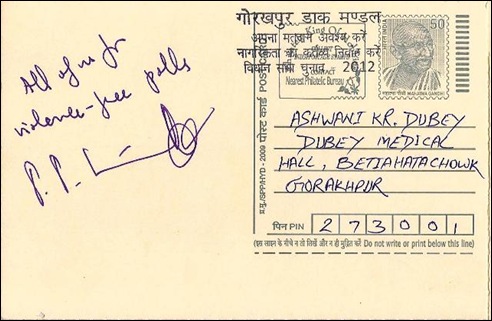 All of us for
violence-free polls
गोरखपुर डाक मण्डल
अपना मतदान अवश्य करें
नागरिकता का दायित्व निर्वाह करें
विधान सभा चुनाव 2012
King Of
CONTACT
Nearest Philatelic Bureau
50
भारत INDIA
महात्मा गाँधी MAHATMA GANDHI
पोस्ट कार्ड POST CARD
ASHWANI KR. DUBEY
DUBEY MEDICAL
HALL, BETIAHATACHOWK
GORAKHPUR
पिन PIN 273001
(इस लाइन के नीचे न तो लिखें और न ही मुद्रित करें Do not write or print below this line)